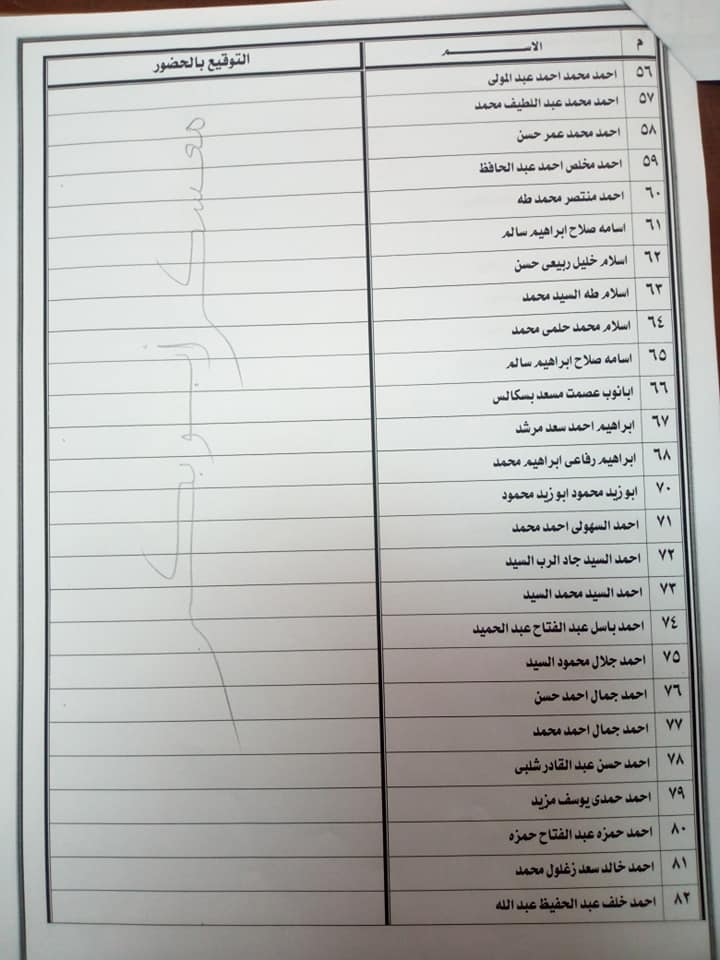 م الاســـــم التوقيع بالحضور
٥٦ احمد محمد احمد عبد المولى
٥٧ احمد محمد عبد اللطيف محمد
٥٨ احمد محمد عمر حسن
٥٩ احمد مخلص احمد عبد الحافظ
٦٠ احمد منتصر محمد طه
٦١ اسامه صلاح ابراهيم سالم
٦٢ اسلام خليل ربيعى حسن
٦٣ اسلام طه السيد محمد
٦٤ اسلام محمد حلمى محمد
٦٥ اسامه صلاح ابراهيم سالم
٦٦ ابانوب عصمت مسعد بسكالس
٦٧ ابراهيم احمد سعد مرشد
٦٨ ابراهيم رفاعى ابراهيم محمد
٧٠ ابو زيد محمود ابو زيد محمود
٧١ احمد السهولى احمد محمد
٧٢ احمد السيد جاد الرب السيد
٧٣ احمد السيد محمد السيد
٧٤ احمد باسل عبد الفتاح عبد الحميد
٧٥ احمد جلال محمود السيد
٧٦ احمد جمال احمد حسن
٧٧ احمد جمال احمد محمد
٧٨ احمد حسن عبد القادر شلبى
٧٩ احمد حمدى يوسف مزيد
٨٠ احمد حمزه عبد الفتاح حمزه
٨١ احمد خالد سعد زغلول محمد
٨٢ احمد خلف عبد الحفيظ عبد الله
معسكر ابو بكر